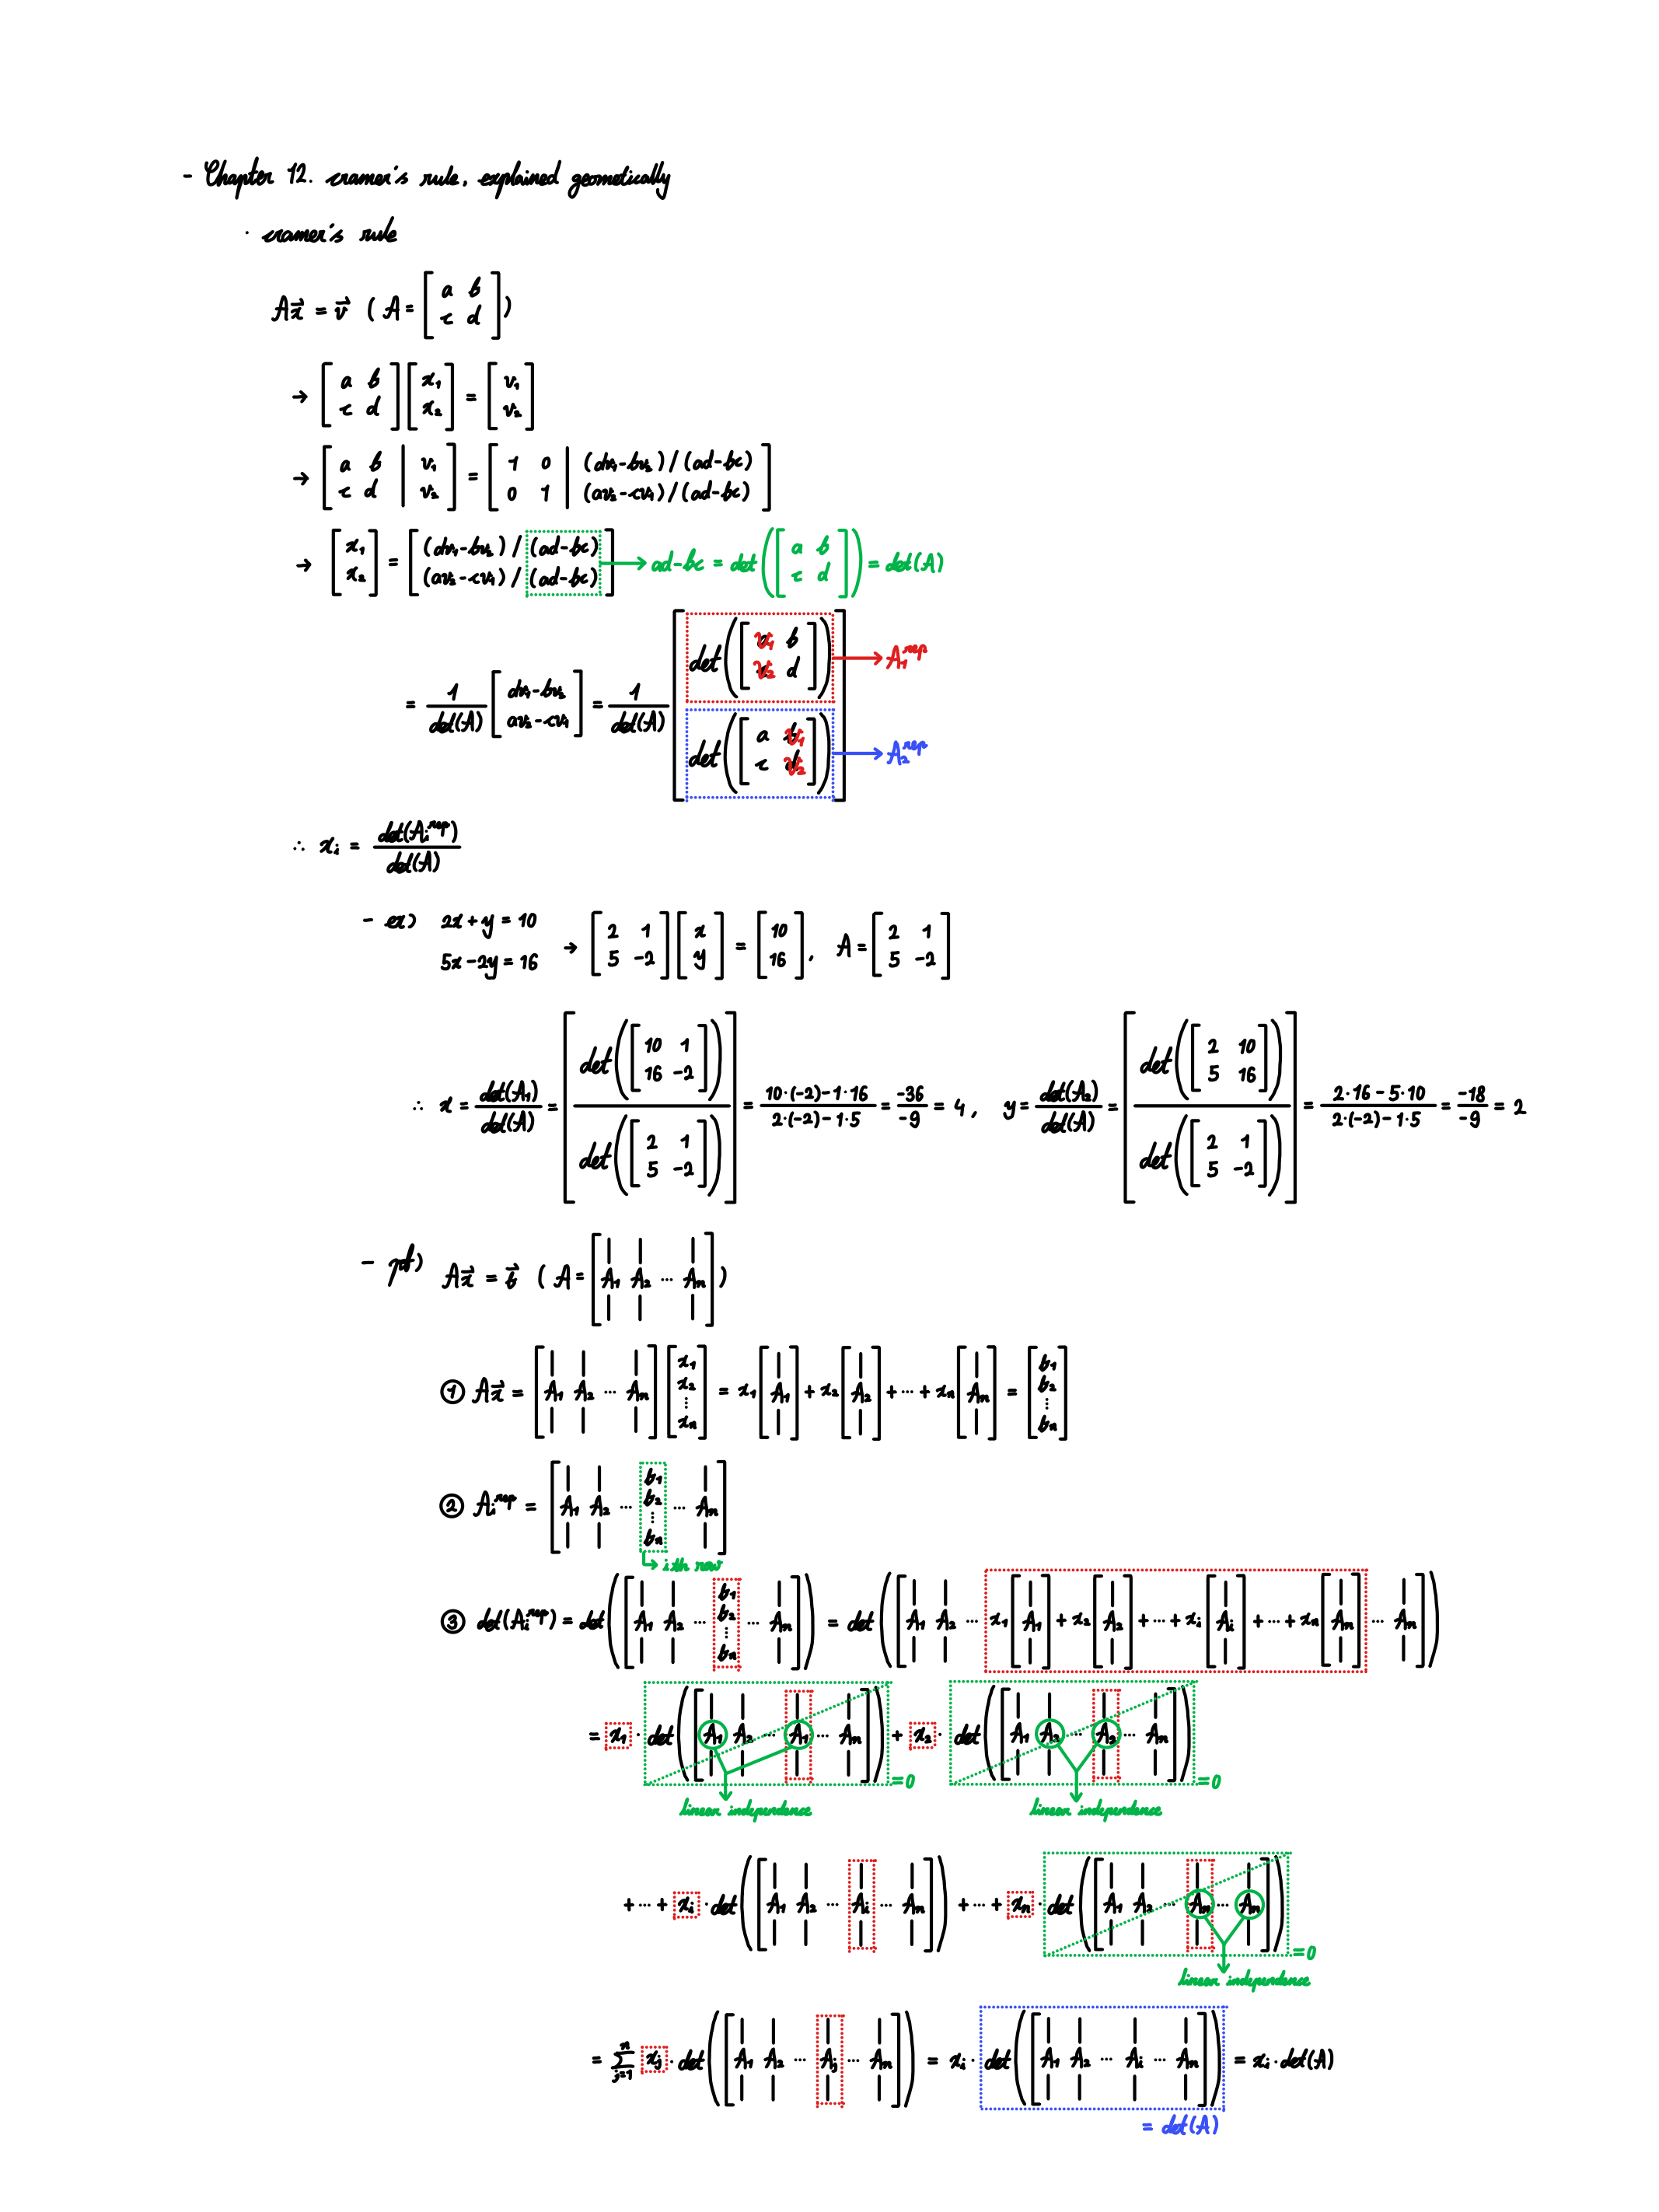 - Chapter 12. cramer's rule, explained geometically
· cramer's rule
A\vec{x} = \vec{v} ( A = [ a b ; c d ] )
→ [ a b ; c d ] [ x₁ ; x₂ ] = [ v₁ ; v₂ ]
→ [ a b | v₁ ; c d | v₂ ] = [ 1 0 | (dv₁-bv₂)/(ad-bc) ; 0 1 | (av₂-cv₁)/(ad-bc) ]
→ [ x₁ ; x₂ ] = [ (dv₁-bv₂)/(ad-bc) ; (av₂-cv₁)/(ad-bc) ] → ad-bc = det([ a b ; c d ]) = det(A)
= 1/det(A) [ dv₁-bv₂ ; av₂-cv₁ ] = 1/det(A) [ det([ v₁ b ; v₂ d ]) ; det([ a v₁ ; c v₂ ]) ] → A₁^rep → A₂^rep
∴ xᵢ = det(Aᵢ^rep) / det(A)
- ex) 2x+y = 10
5x-2y = 16 → [ 2 1 ; 5 -2 ] [ x ; y ] = [ 10 ; 16 ], A = [ 2 1 ; 5 -2 ]
∴ x = det(A₁)/det(A) = [ det([ 10 1 ; 16 -2 ]) / det([ 2 1 ; 5 -2 ]) ] = (10·(-2)-1·16)/(2·(-2)-1·5) = -36/-9 = 4, y = det(A₂)/det(A) = [ det([ 2 10 ; 5 16 ]) / det([ 2 1 ; 5 -2 ]) ] = (2·16-5·10)/(2·(-2)-1·5) = -18/-9 = 2
- pf) A\vec{x} = \vec{b} ( A = [ A₁ A₂ ··· Aₙ ] )
① A\vec{x} = [ A₁ A₂ ··· Aₙ ] [ x₁ ; x₂ ; ⋮ ; xₙ ] = x₁[ A₁ ] + x₂[ A₂ ] + ··· + xₙ[ Aₙ ] = [ b₁ ; b₂ ; ⋮ ; bₙ ]
② Aᵢ^rep = [ A₁ A₂ ··· b₁ ; b₂ ; ⋮ ; bₙ ··· Aₙ ]
→ i th row
③ det(Aᵢ^rep) = det([ A₁ A₂ ··· b₁ ; b₂ ; ⋮ ; bₙ ··· Aₙ ]) = det([ A₁ A₂ ··· x₁[ A₁ ] + x₂[ A₂ ] + ··· + xᵢ[ Aᵢ ] + ··· + xₙ[ Aₙ ] ··· Aₙ ])
= x₁ · det([ A₁ A₂ ··· A₁ ··· Aₙ ]) =0 + x₂ · det([ A₁ A₂ ··· A₂ ··· Aₙ ]) =0
linear independence linear independence
+ ··· + xᵢ · det([ A₁ A₂ ··· Aᵢ ··· Aₙ ]) + ··· + xₙ · det([ A₁ A₂ ··· Aₙ ··· Aₙ ]) =0
linear independence
= Σ_{j=1}^{n} xⱼ · det([ A₁ A₂ ··· Aⱼ ··· Aₙ ]) = xᵢ · det([ A₁ A₂ ··· Aᵢ ··· Aₙ ]) = xᵢ · det(A)
= det(A)